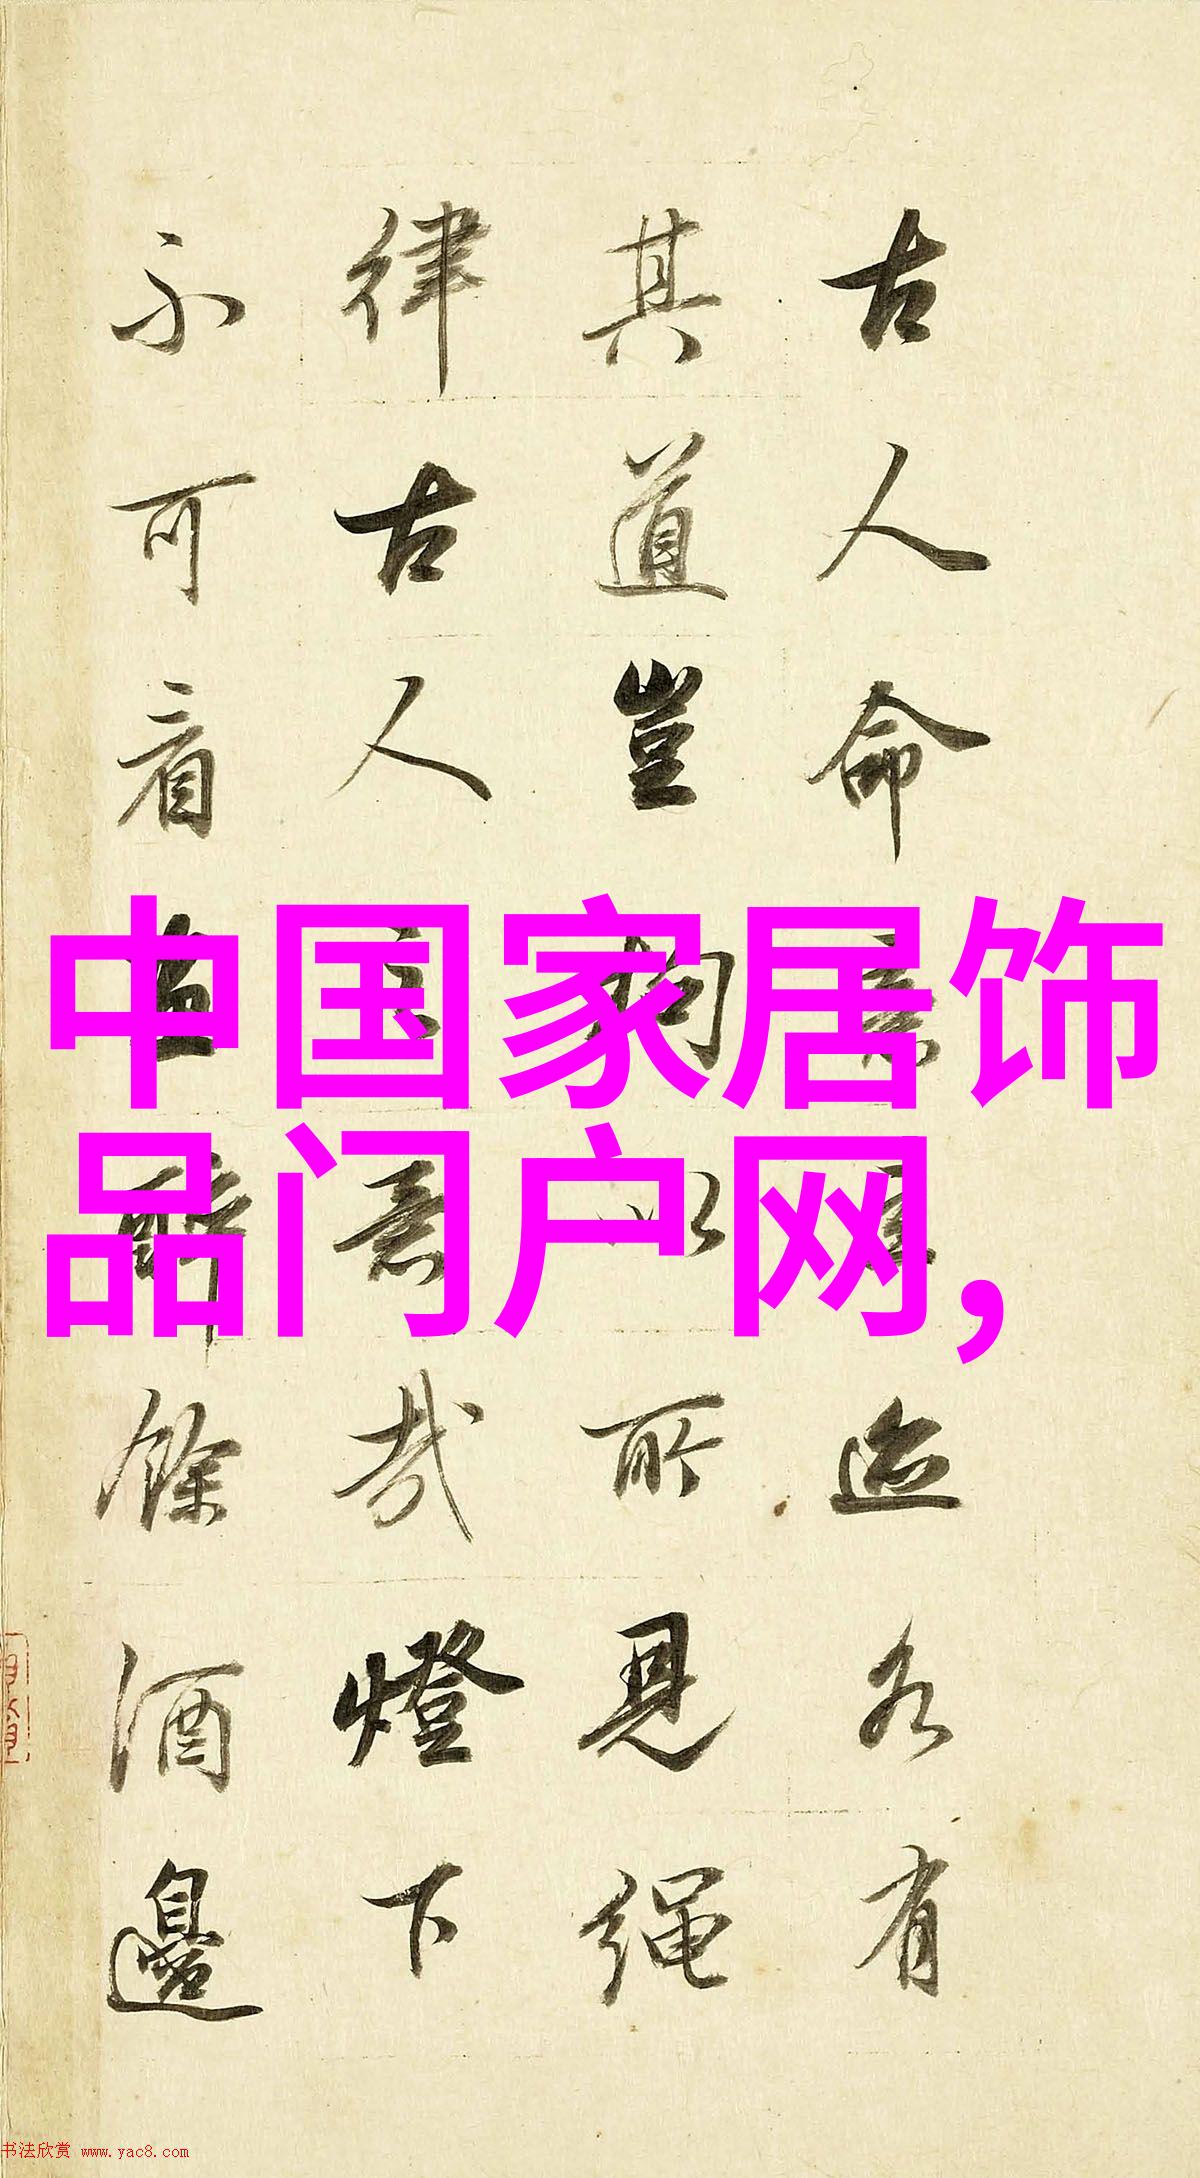 古人命迹各有
其道豈拘以所見繩
律古人意哉燈下
不可看醉餘酒邊
中国家居饰
品门户网,
书法欣赏 www.yac8.com